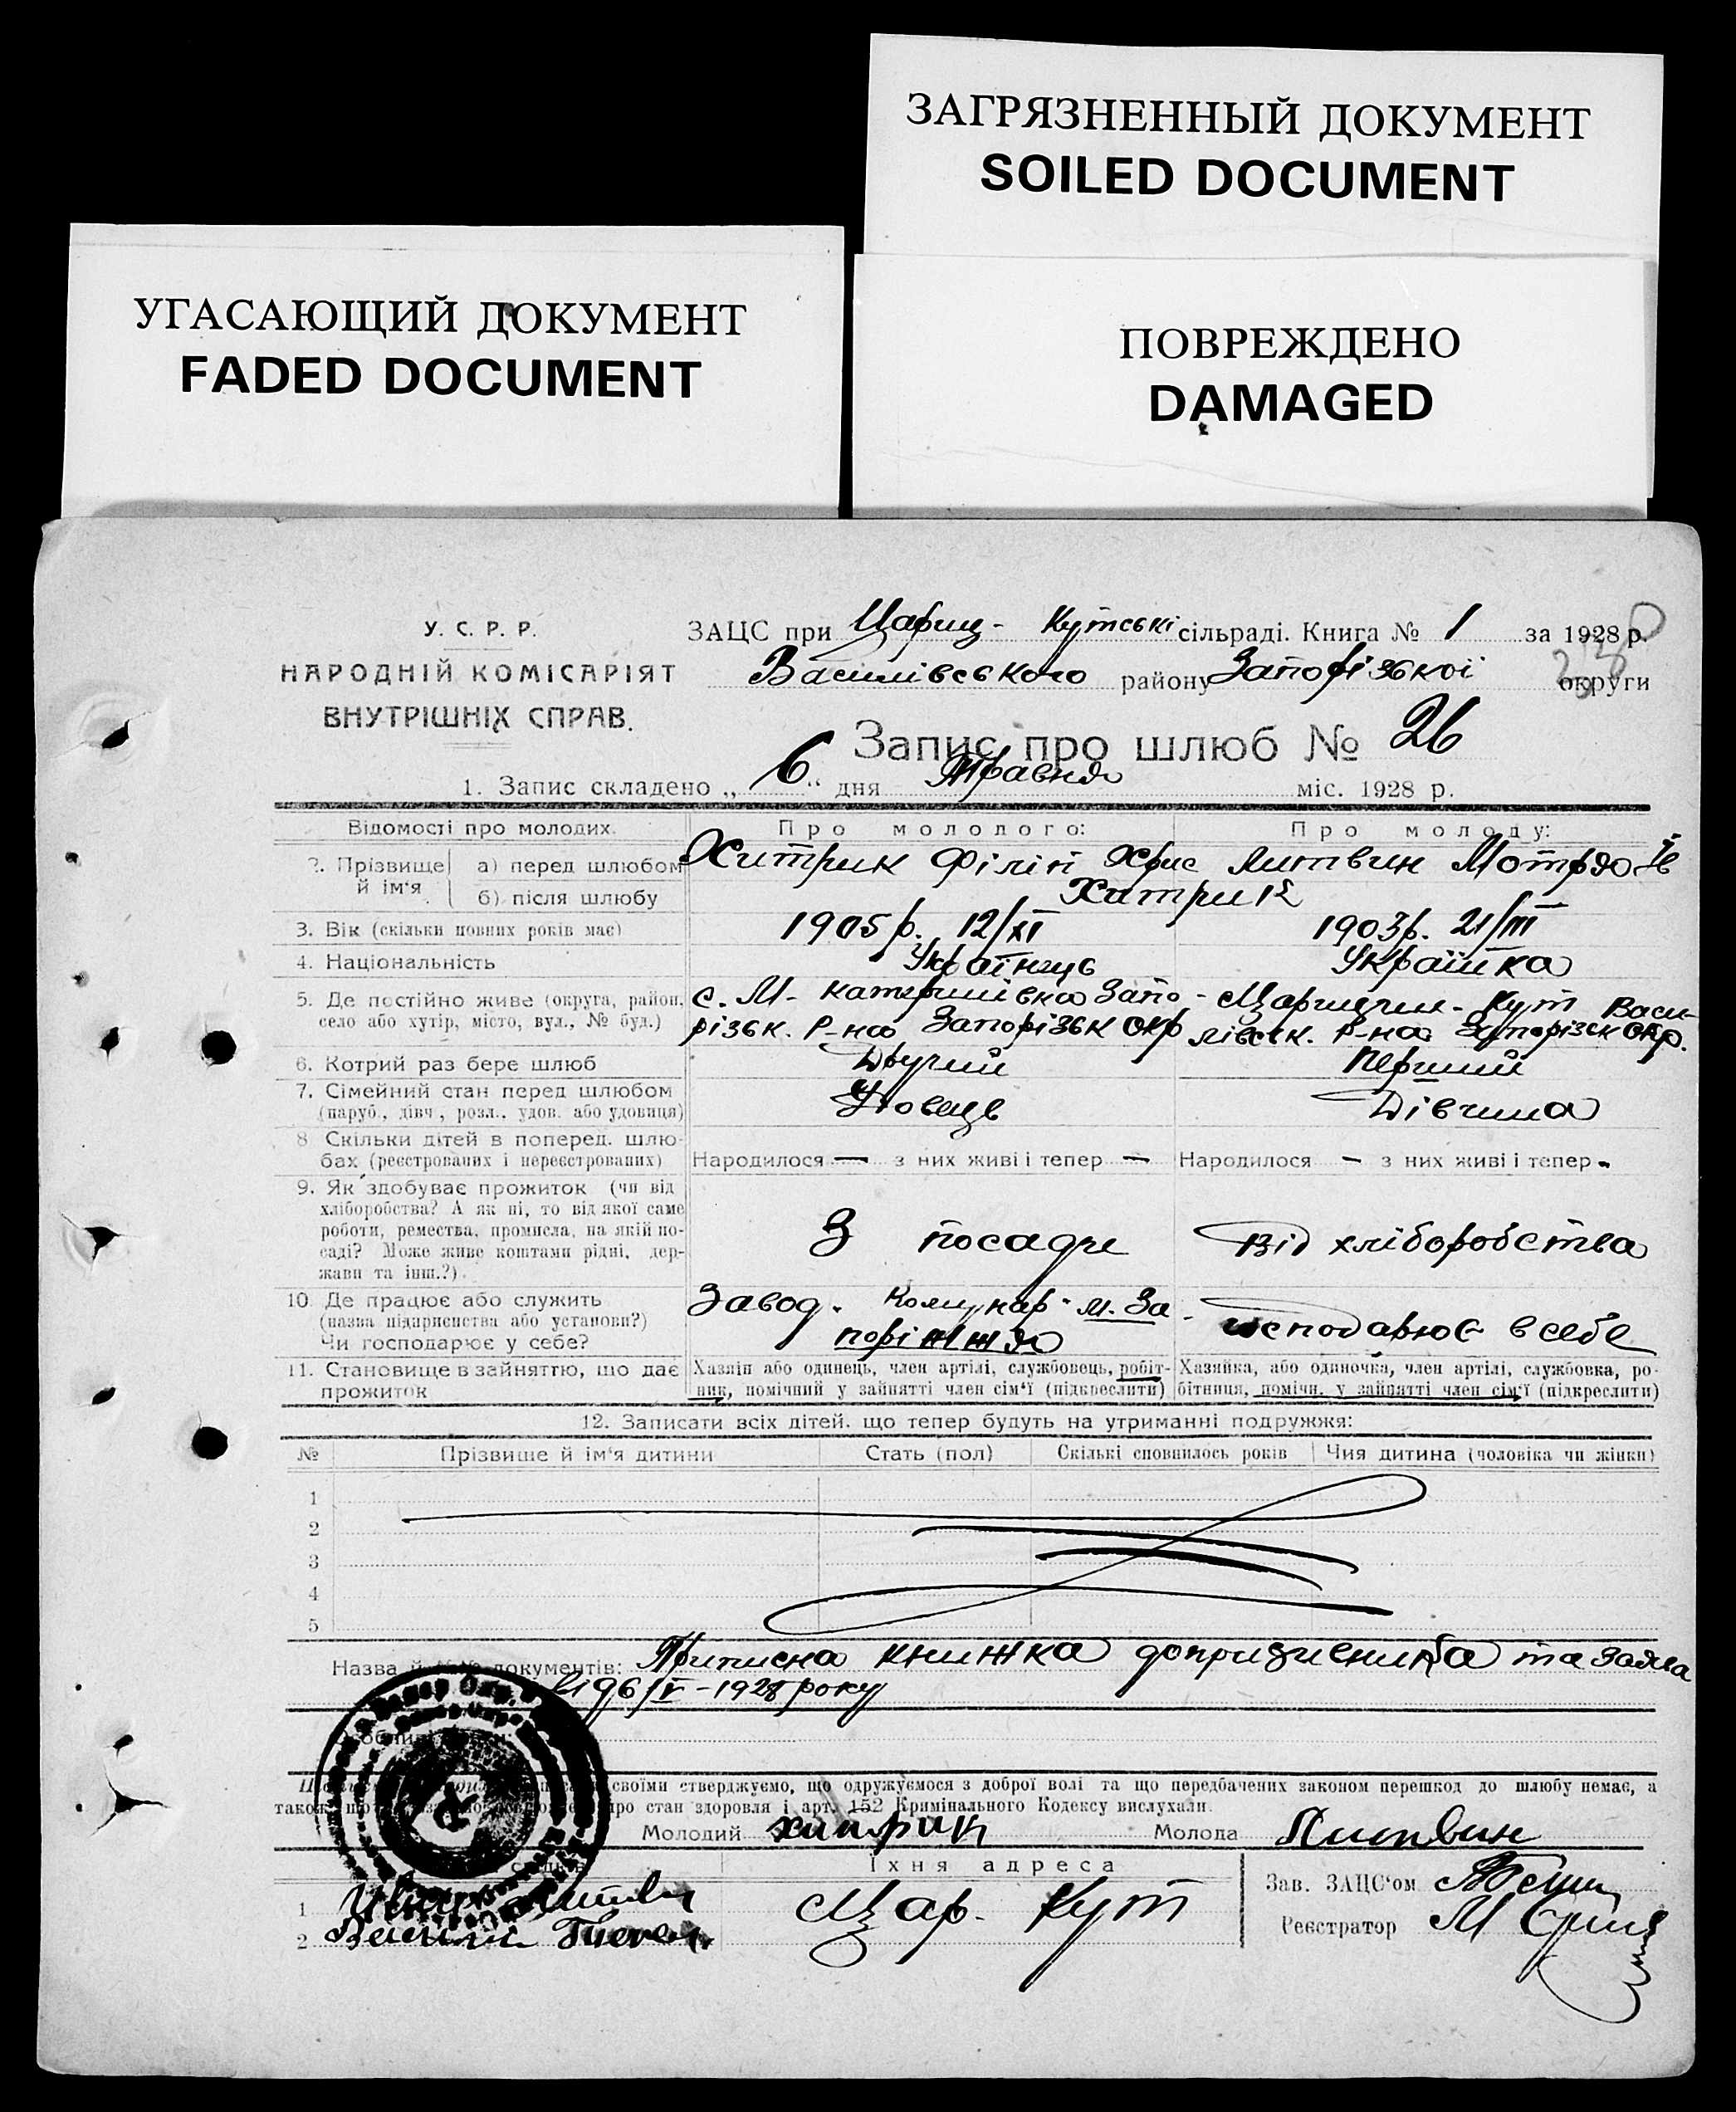 ЗАГРЯЗНЕННЫЙ ДОКУМЕНТ
SOILED DOCUMENT
УГАСАЮЩИЙ ДОКУМЕНТ
FADED DOCUMENT
ПОВРЕЖДЕНО
DAMAGED
У. С. Р. Р.
НАРОДНІЙ КОМІСАРІЯТ
ВНУТРІШНІХ СПРАВ.
ЗАЦС при Цариц- Кутські сільраді. Книга № 1 за 1928 р.
Василівського району Запорізької округи
Запис про шлюб № 26
1. Запис складено „ 6 “ дня Травня міс. 1928 р.
Відомості про молодих. Про молодого: Про молоду:
2. Прізвище й ім'я а) перед шлюбом Хитрик Філіп Хрис Литвин Мотря Їв
б) після шлюбу Хитрик
3. Вік (скільки повних років має) 1905 р. 12/XI 1903 р. 21/III
4. Національність Українець Українка
5. Де постійно живе (округа, район, с. М- Катеринівка Запо- Царицин-Кут Васи-
село або хутір, місто, вул., № буд.) різьк. Р-на Запорізьк Окр лівськ. Р-на Запорізьк Окр.
6. Котрий раз бере шлюб Другий Перший
7. Сімейний стан перед шлюбом Удовець Дівчина
(паруб., дівч., розл., удов. або удовиця)
8 Скільки дітей в поперед. шлю-
бах (реєстрованих і нереєстрованих) Народилося — з них живі і тепер — Народилося — з них живі і тепер -
9. Як здобуває прожиток (чи від
хліборобства? А як ні, то від якої саме
роботи, ремества, промисла, на якій по- З посади Від хліборобства
саді? Може живе коштами рідні, дер-
жави та інш.?).
10. Де працює або служить Завод. Комунар- м. За-
(назва підприємства або установи?) поріжжя господарює в себе
Чи господарює у себе?
11. Становище в зайняттю, що дає Хазяїн або одинець, член артілі, службовець, робіт- Хазяйка, або одиночка, член артілі, службовка, ро-
прожиток ник, помічний у зайнятті член сім'ї (підкреслити) бітниця, помічн. у зайнятті член сім'ї (підкреслити)
12. Записати всіх дітей, що тепер будуть на утриманні подружжя:
№ Прізвище й ім'я дитини Стать (пол) Скількі сповнилось років Чия дитина (чоловіка чи жінки)
1
2
3
4
5
Назва й №№ документів: Приписна книжка допризисника та заява
від 6/V-1928 року
своїми стверджуємо, що одружуємося з доброї волі та що передбачених законом перешкод до шлюбу немає, а
також про стан здоровля і арт. 152 Кримінального Кодексу вислухали.
Молодий хитрик Молода Литвин
Їхня адреса
Зав. ЗАЦС'ом
1 Цар. Кут
Реєстратор
2 Василий